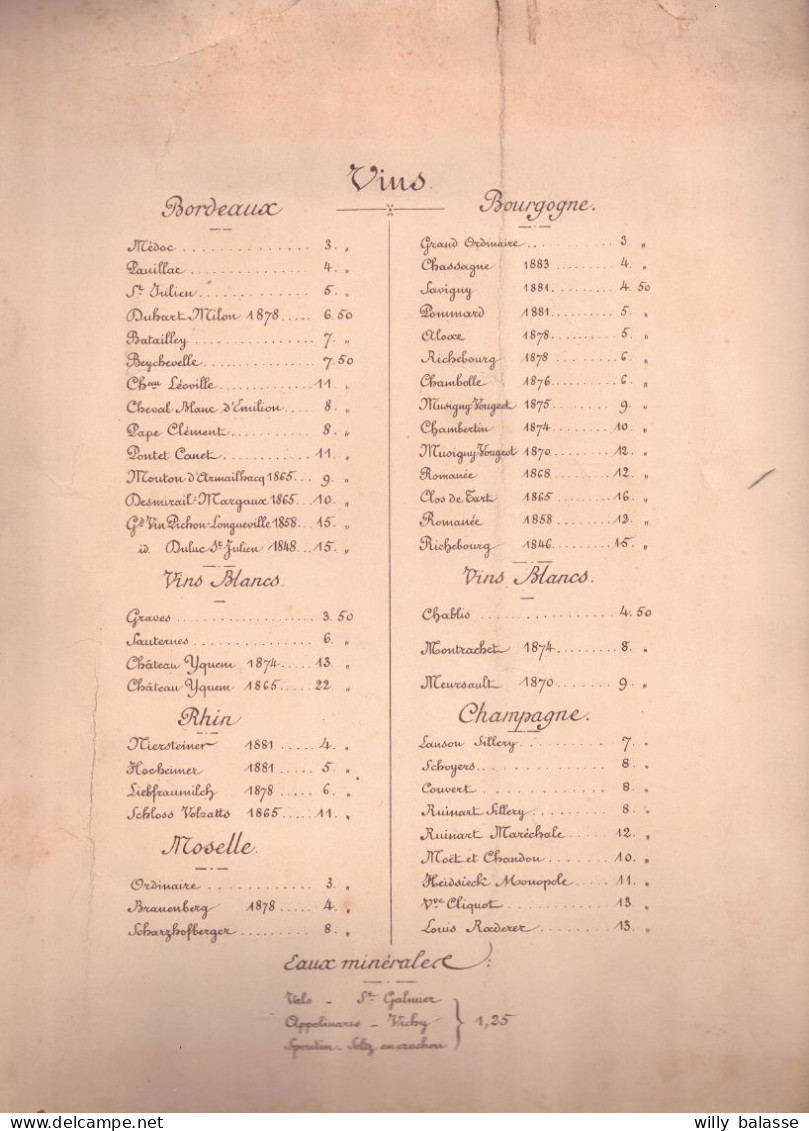 Vins.
Bordeaux
Médoc ............... 3. „
Pauillac ............. 4. „
St Julien ............. 5. „
Duhart Milon 1878 ..... 6.50
Batailley ............. 7. „
Beychevelle ........... 7.50
Chau Léoville ......... 11. „
Cheval Blanc d'Emilion ..... 8. „
Pape Clément ........... 8. „
Pontet Canet ........... 11. „
Mouton d'Armailhacq 1865 ... 9. „
Desmirail-Margaux 1865 ... 10. „
Gd Vin Pichon-Longueville 1858 ... 15. „
id. Duluc St Julien 1848 ... 15. „
Vins Blancs.
Graves ............... 3.50
Sauternes ............. 6. „
Château Yquem 1874 ..... 13. „
Château Yquem 1865 ..... 22. „
Rhin
Niersteiner 1881 ..... 4. „
Hocheimer 1881 ..... 5. „
Liebfraumilch 1878 ..... 6. „
Schloss Volratts 1865 .... 11. „
Moselle.
Ordinaire ............ 3. „
Brauenberg 1878 ..... 4. „
Scharzhofberger ......... 8. „
Bourgogne.
Grand Ordinaire ........... 3. „
Chassagne 1883 ......... 4. „
Savigny 1881 ......... 4.50
Pommard 1881 ......... 5. „
Aloxe 1878 ......... 5. „
Richebourg 1878 ......... 6. „
Chambolle 1876 ......... 6. „
Musigny-Vougeot 1875 ........ 9. „
Chambertin 1874 ........ 10. „
Musigny-Vougeot 1870 ........ 12. „
Romanée 1868 ........ 12. „
Clos de Tart 1865 ........ 16. „
Romanée 1858 ........ 12. „
Richebourg 1846 ........ 15. „
Vins Blancs.
Chablis ............... 4.50
Montrachet 1874 ........ 8. „
Meursault 1870 ........ 9. „
Champagne.
Lanson Sillery .......... 7. „
Schoyers .............. 8. „
Couvert .............. 8. „
Ruinart Sillery .......... 8. „
Ruinart Maréchale ..... 12. „
Moët et Chandon ........ 10. „
Heidsieck Monopole .... 11. „
Vve Cliquot ........... 13. „
Louis Rœderer ......... 13. „
Eaux minérales:
Vals - St Galmier
Appolinaris - Vichy } 1,25
Spontin - Seltz en cruchon
willy balasse